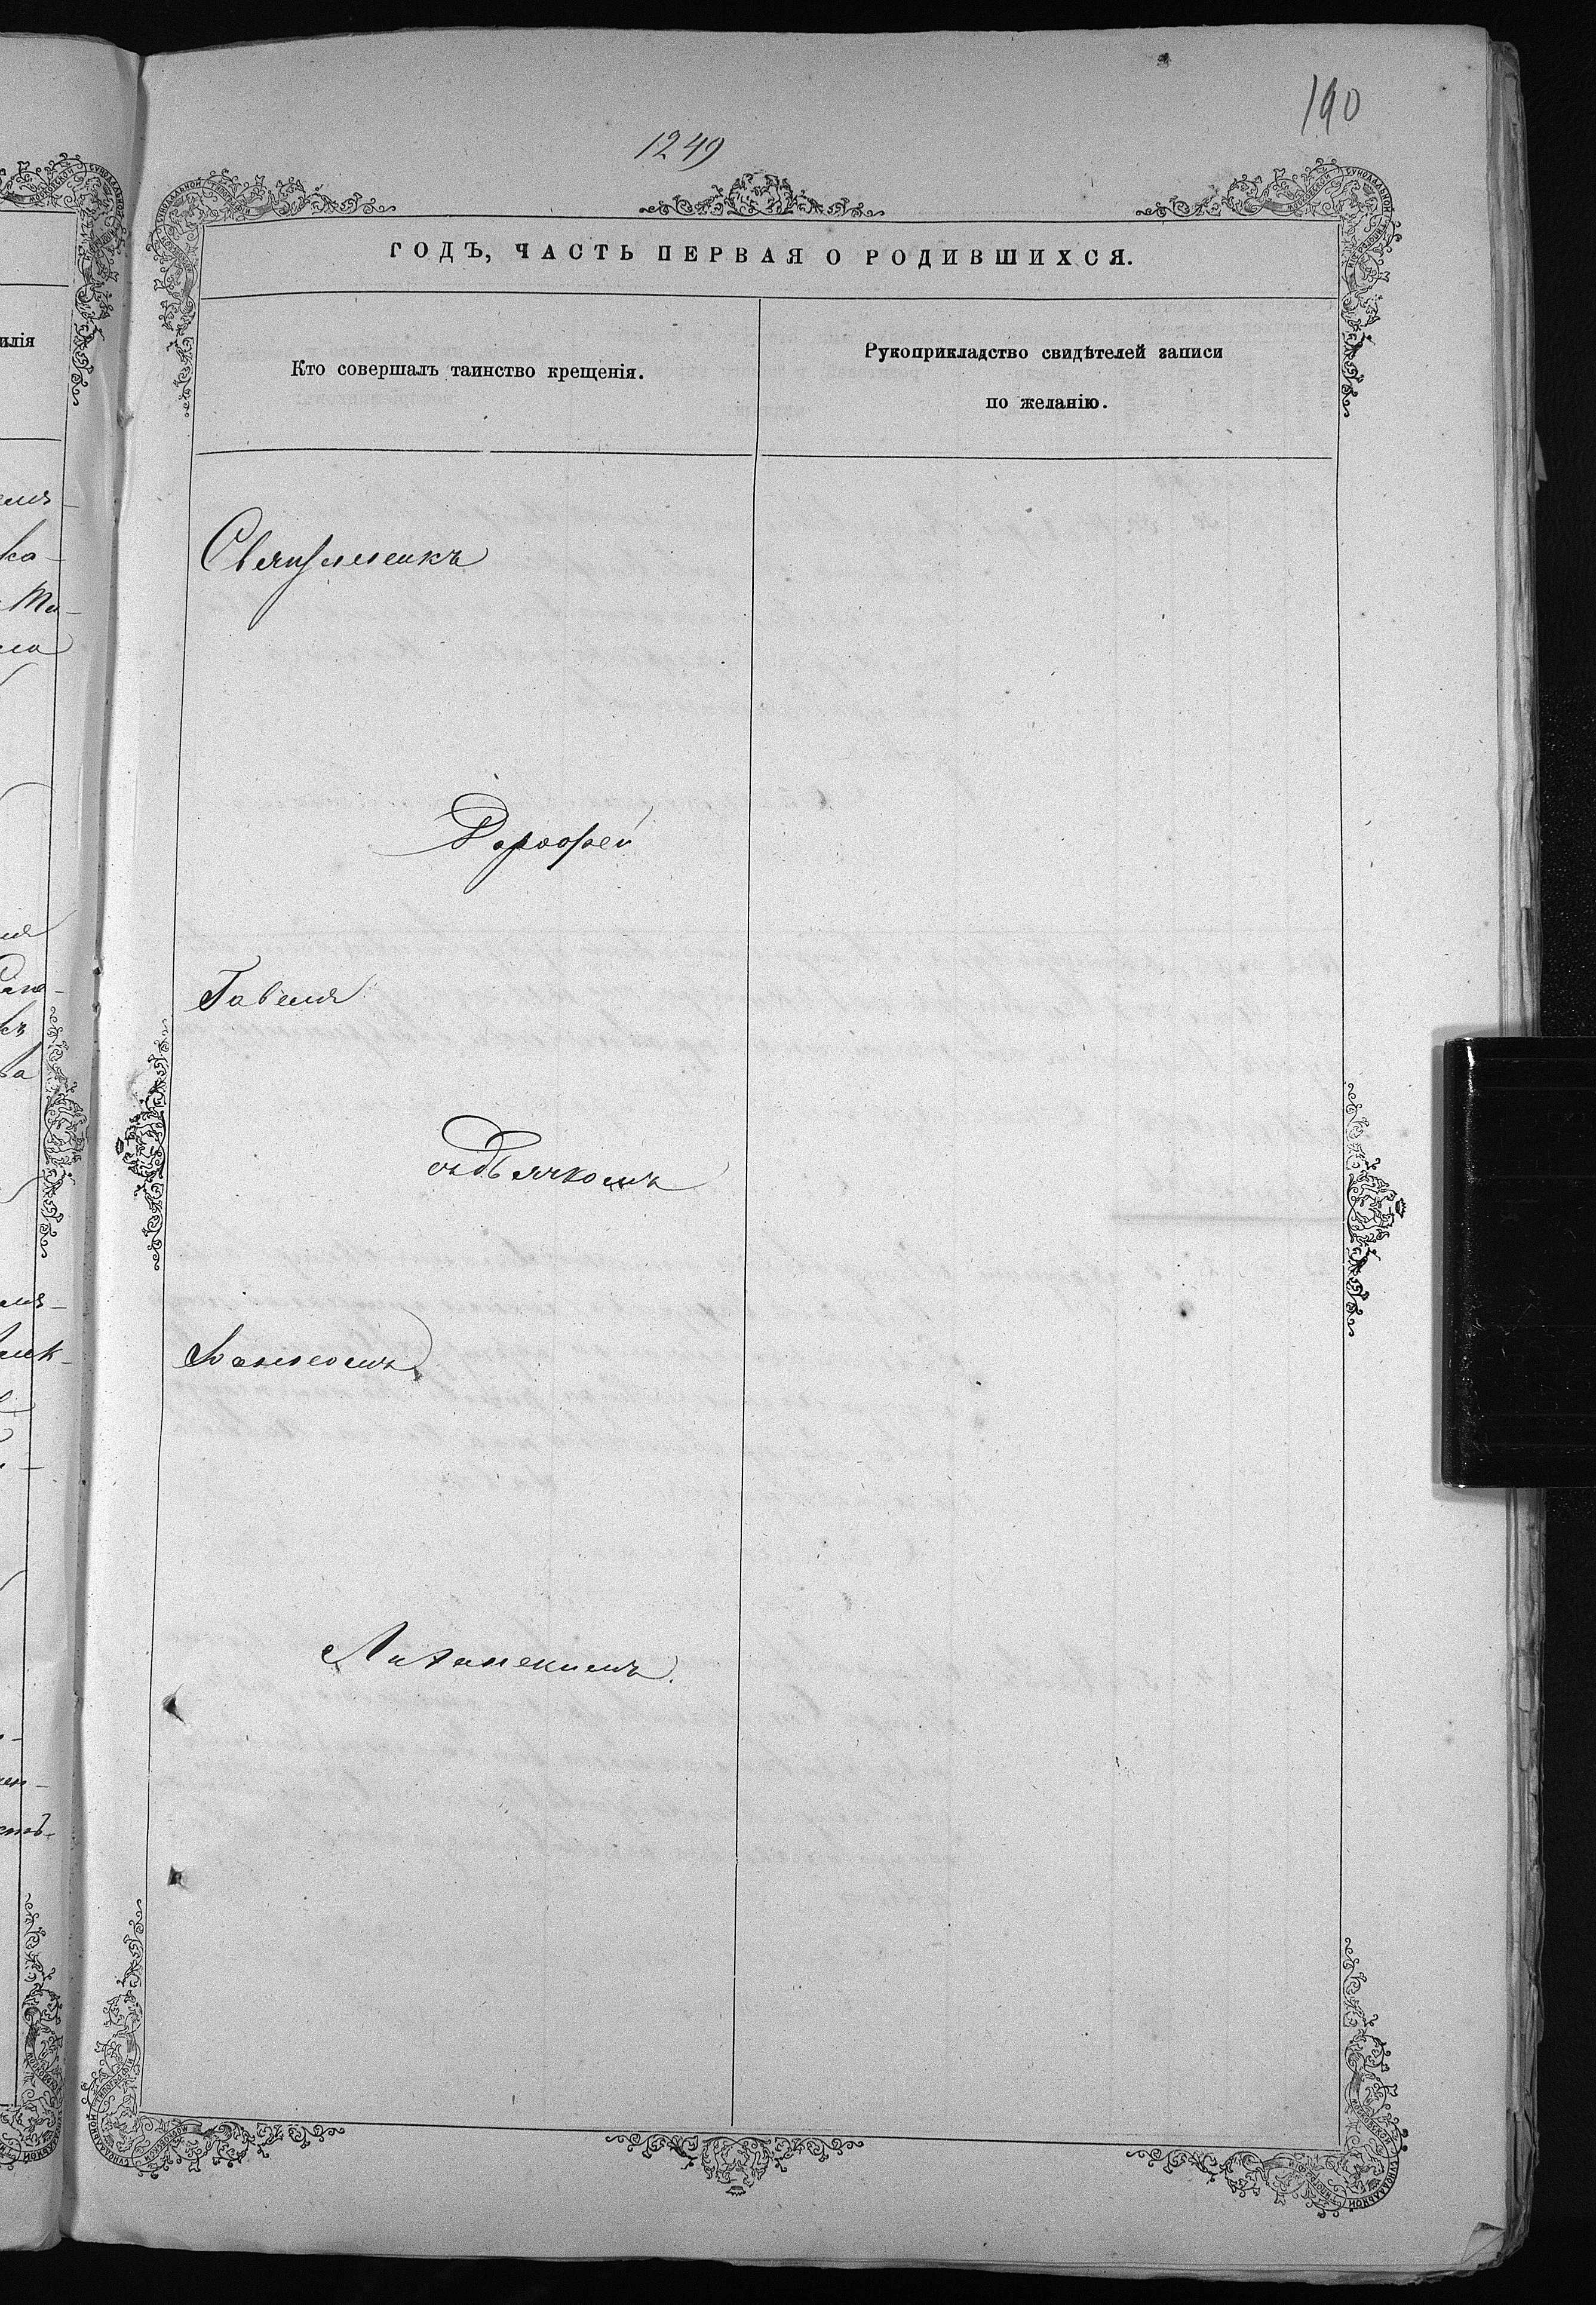 190
1249
ГОДЪ, ЧАСТЬ ПЕРВАЯ О РОДИВШИХСЯ.
Кто совершалъ таинство крещенія.
Рукоприкладство свидѣтелей записи
по желанію.
Священникъ
Дорофей
Гавеля
съ дьячкомъ
Іоанномъ